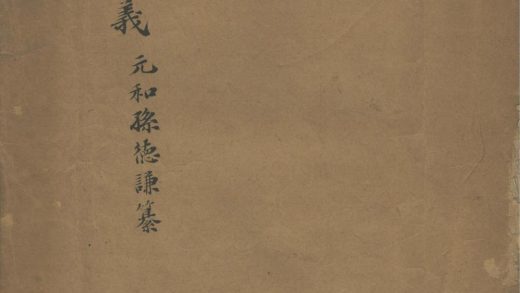 義 元和孫德謙纂